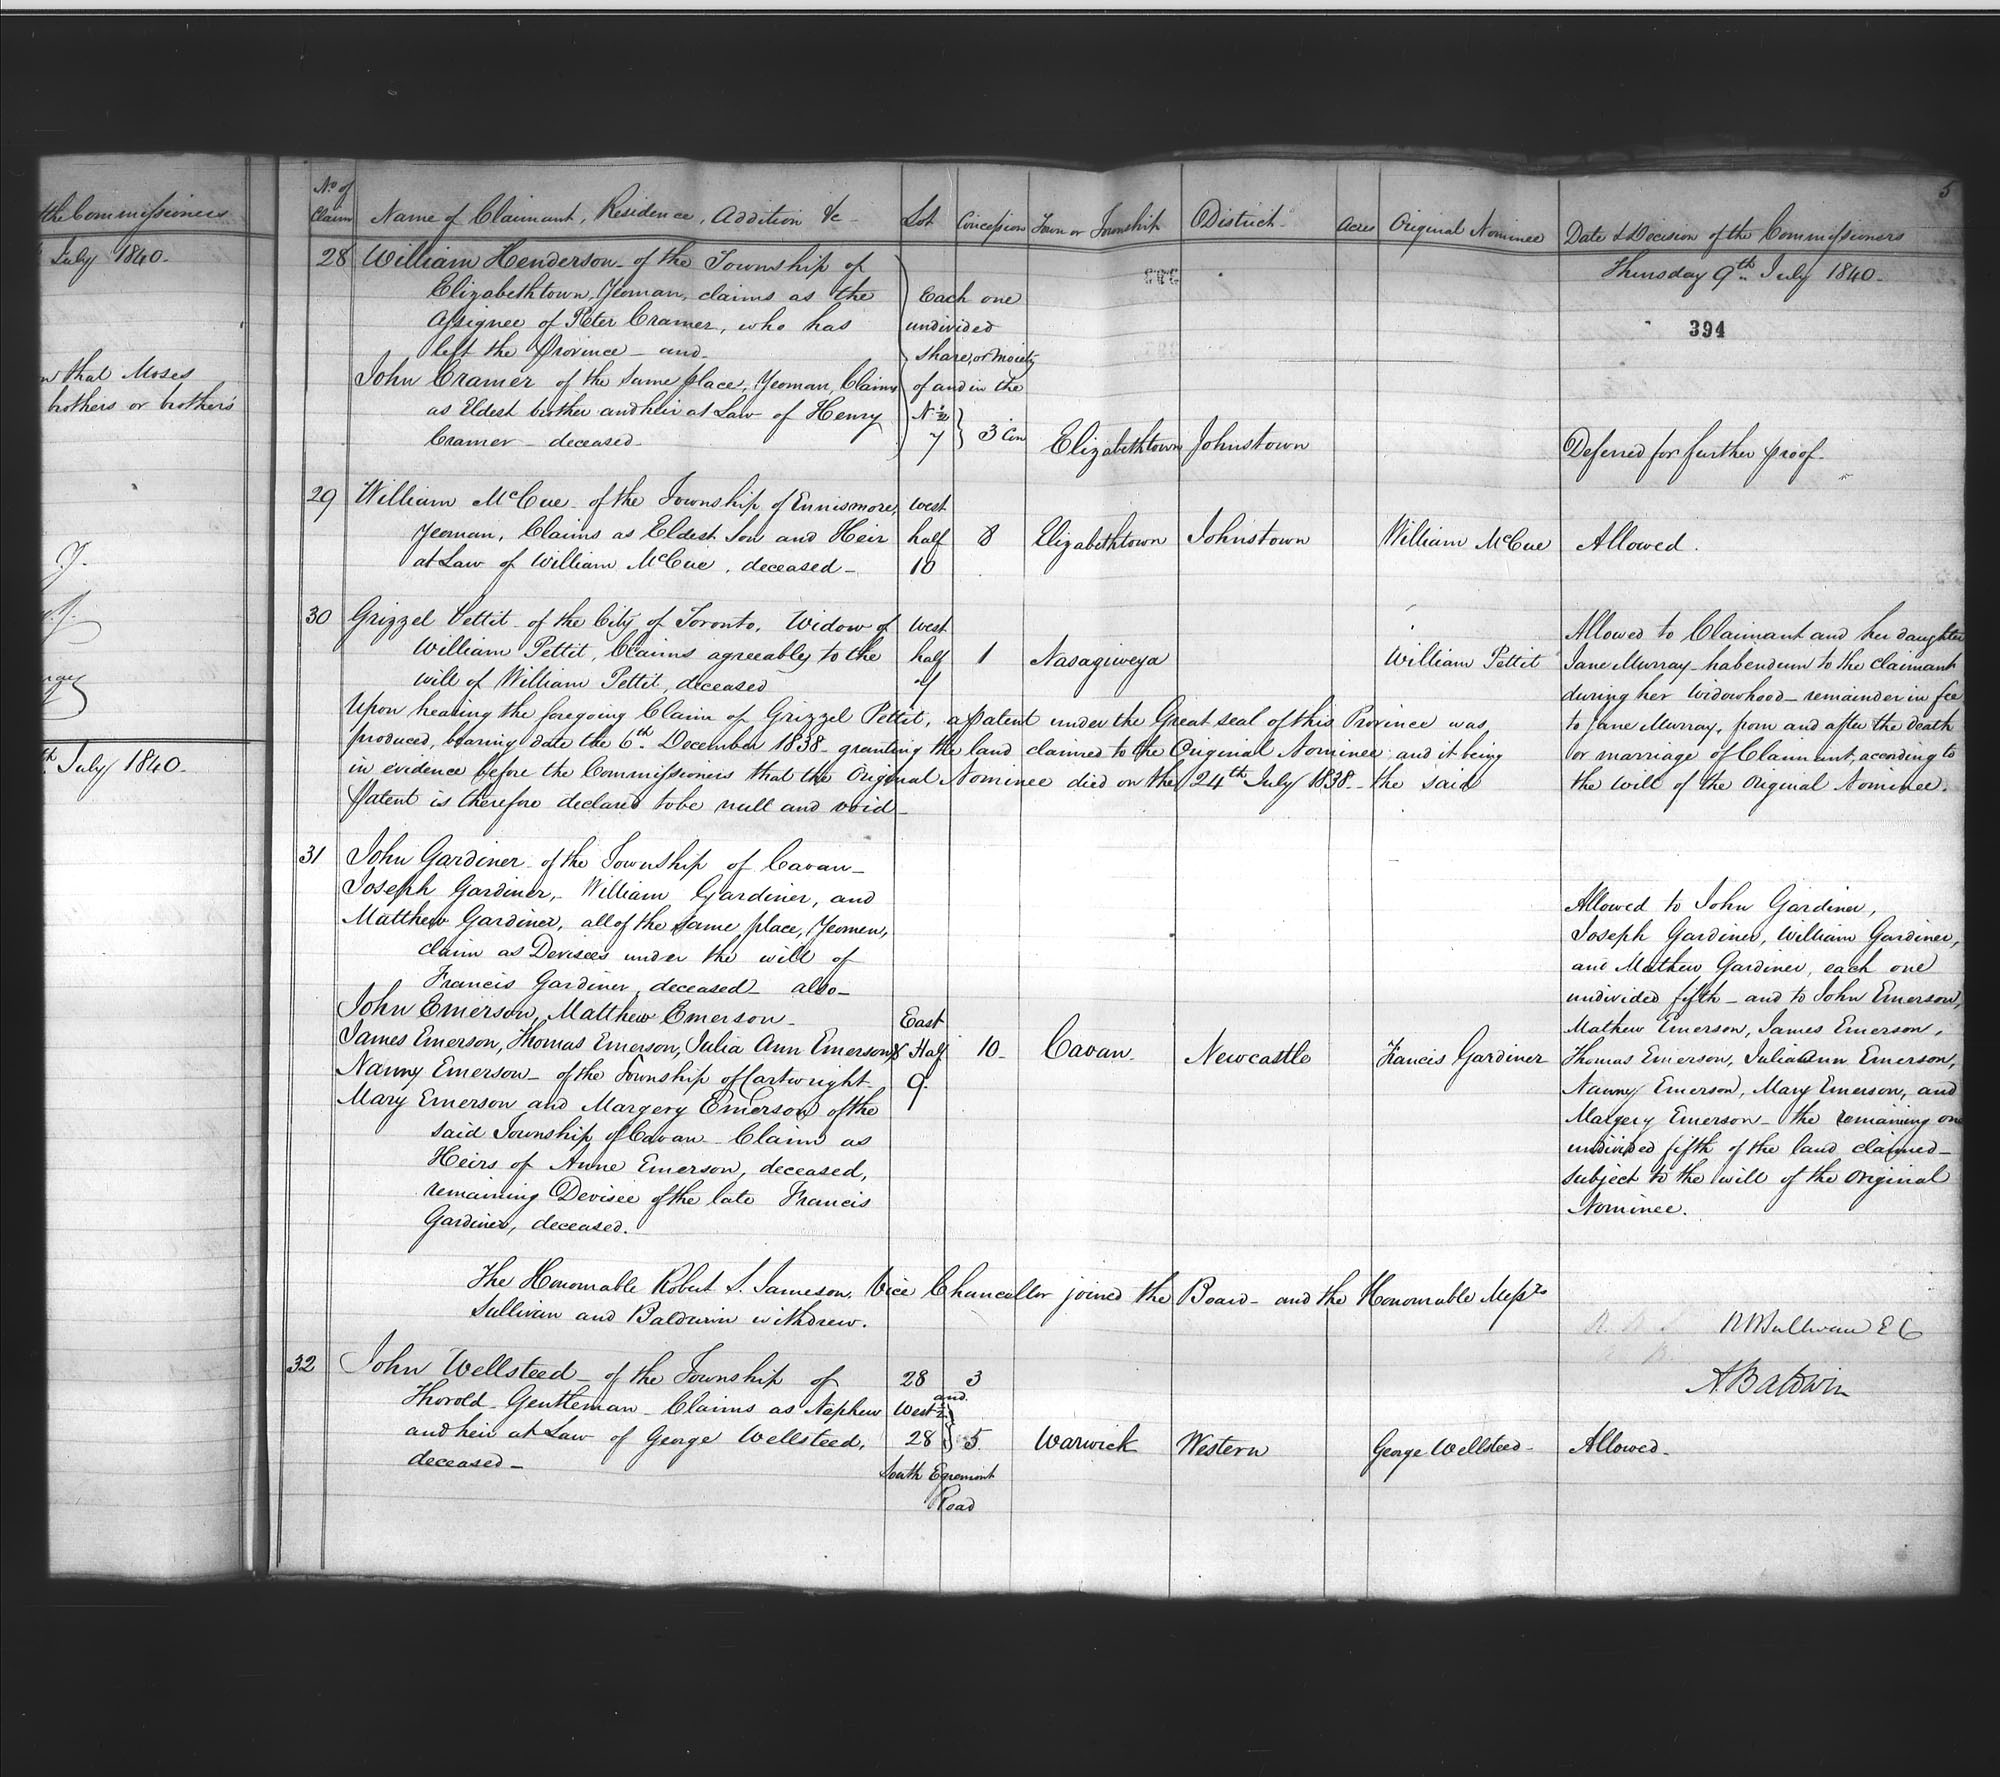 the Commissioners
July 1840.
that Moses
brothers or brother's
J.
th July 1840.
5
No. of
Claim
Name of Claimant, Residence, Addition &c
Lot
Concession
Town or Township
District
Acres
Original Nominee
Date & Decision of the Commissioners
Thursday 9th July 1840.
394
28
William Henderson of the Township of
Elizabethtown, Yeoman, claims as the
Assignee of Peter Cramer, who has
left the Province – and
John Cramer of the same place, Yeoman, Claims
as Eldest brother and heir at Law of Henry
Cramer – deceased
Each one
undivided
share, or moiety
of and in the
N ½
7
3 Con
Elizabethtown
Johnstown
Deferred for further proof.
29
William McCue of the Township of Ennismore,
Yeoman, Claims as Eldest Son and Heir
at Law of William McCue, deceased –
West
half
10
8
Elizabethtown
Johnstown
William McCue
Allowed.
30
Grizzel Pettit of the City of Toronto, Widow of
William Pettit, Claims agreeably to the
will of William Pettit, deceased
West
half
7
1
Nasagiweya
William Pettit
Allowed to Claimant and her daughter
Jane Murray – habendum to the claimant
during her Widowhood – remainder in fee
to Jane Murray, from and after the death
or marriage of Claimant, according to
the will of the Original Nominee.
Upon hearing the foregoing Claim of Grizzel Pettit, a Patent under the Great seal of this Province was
produced, bearing date the 6th December 1838 – granting the land claimed to the Original Nominee and it being
in evidence before the Commissioners that the Original Nominee died on the 24th July 1838 – the said
Patent is therefore declared to be null and void –
31
John Gardiner of the Township of Cavan –
Joseph Gardiner, William Gardiner, and
Matthew Gardiner, all of the same place, Yeomen,
claim as Devisees under the will of
Francis Gardiner, deceased – also –
John Emerson, Matthew Emerson –
James Emerson, Thomas Emerson, Julia Ann Emerson, &
Nanny Emerson – of the Township of Cartwright
Mary Emerson and Margery Emerson of the
said Township of Cavan – Claim as
Heirs of Anne Emerson, deceased,
remaining Devisee of the late Francis
Gardiner, deceased.
East
Half
9.
10.
Cavan.
Newcastle
Francis Gardiner
Allowed to John Gardiner,
Joseph Gardiner, William Gardiner,
and Mathew Gardiner, each one
undivided fifth – and to John Emerson,
Mathew Emerson, James Emerson,
Thomas Emerson, Julia Ann Emerson,
Nanny Emerson, Mary Emerson, and
Margery Emerson – the remaining one
undivided fifth of the land claimed –
subject to the will of the Original
Nominee.
The Honourable Robert S. Jameson, Vice Chancellor joined the Board – and the Honourable Messrs
Sullivan and Baldwin withdrew.
R B Sullivan E C
A Baldwin
32
John Wellsteed – of the Township of
Thorold – Gentleman – Claims as Nephew
and heir at Law of George Wellsteed,
deceased –
28
3
and
West ½
28
5.
South Egremont
Road
Warwick
Western
George Wellsteed –
Allowed –